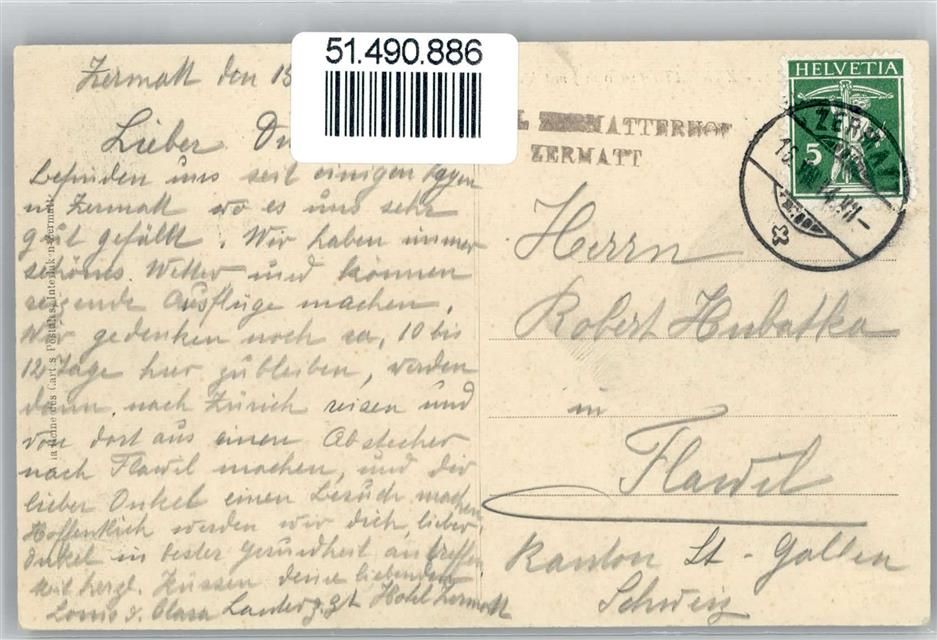 51.490.886
Zermatt den 15
HELVETIA
5
ZERMATT
MATTERHOF
ZERMATT
Lieber
befinden uns seit einigen Tagen
in Zermatt wo es uns sehr
gut gefällt. Wir haben immer
schönes Wetter und können
reizende Ausflüge machen.
Wir gedenken noch ca. 10 bis
12 Tage hier zu bleiben, werden
dann nach Zürich reisen und
von dort aus einen Abstecher
nach Flawil machen, und dir
lieber Onkel einen Besuch machen
Hoffentlich werden wir dich, lieber
Onkel in bester Gesundheit antreffen
herzl. Küssen deine liebenden
Louis & Clara Hotel Zermatt
Herrn
Robert Hubatka
in
Flawil
Kanton St-Gallen
Schweiz